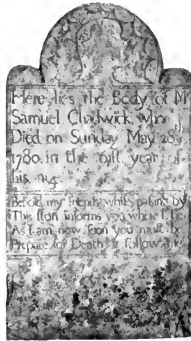 Here lies the Body of M
Samuel Chadwick who
Died on Sunday May 28
1780. in the year of
his age.
Behold my friends while passing by
This ston informs you where I lie
As I am now soon you must be
Prepare for Death & follow